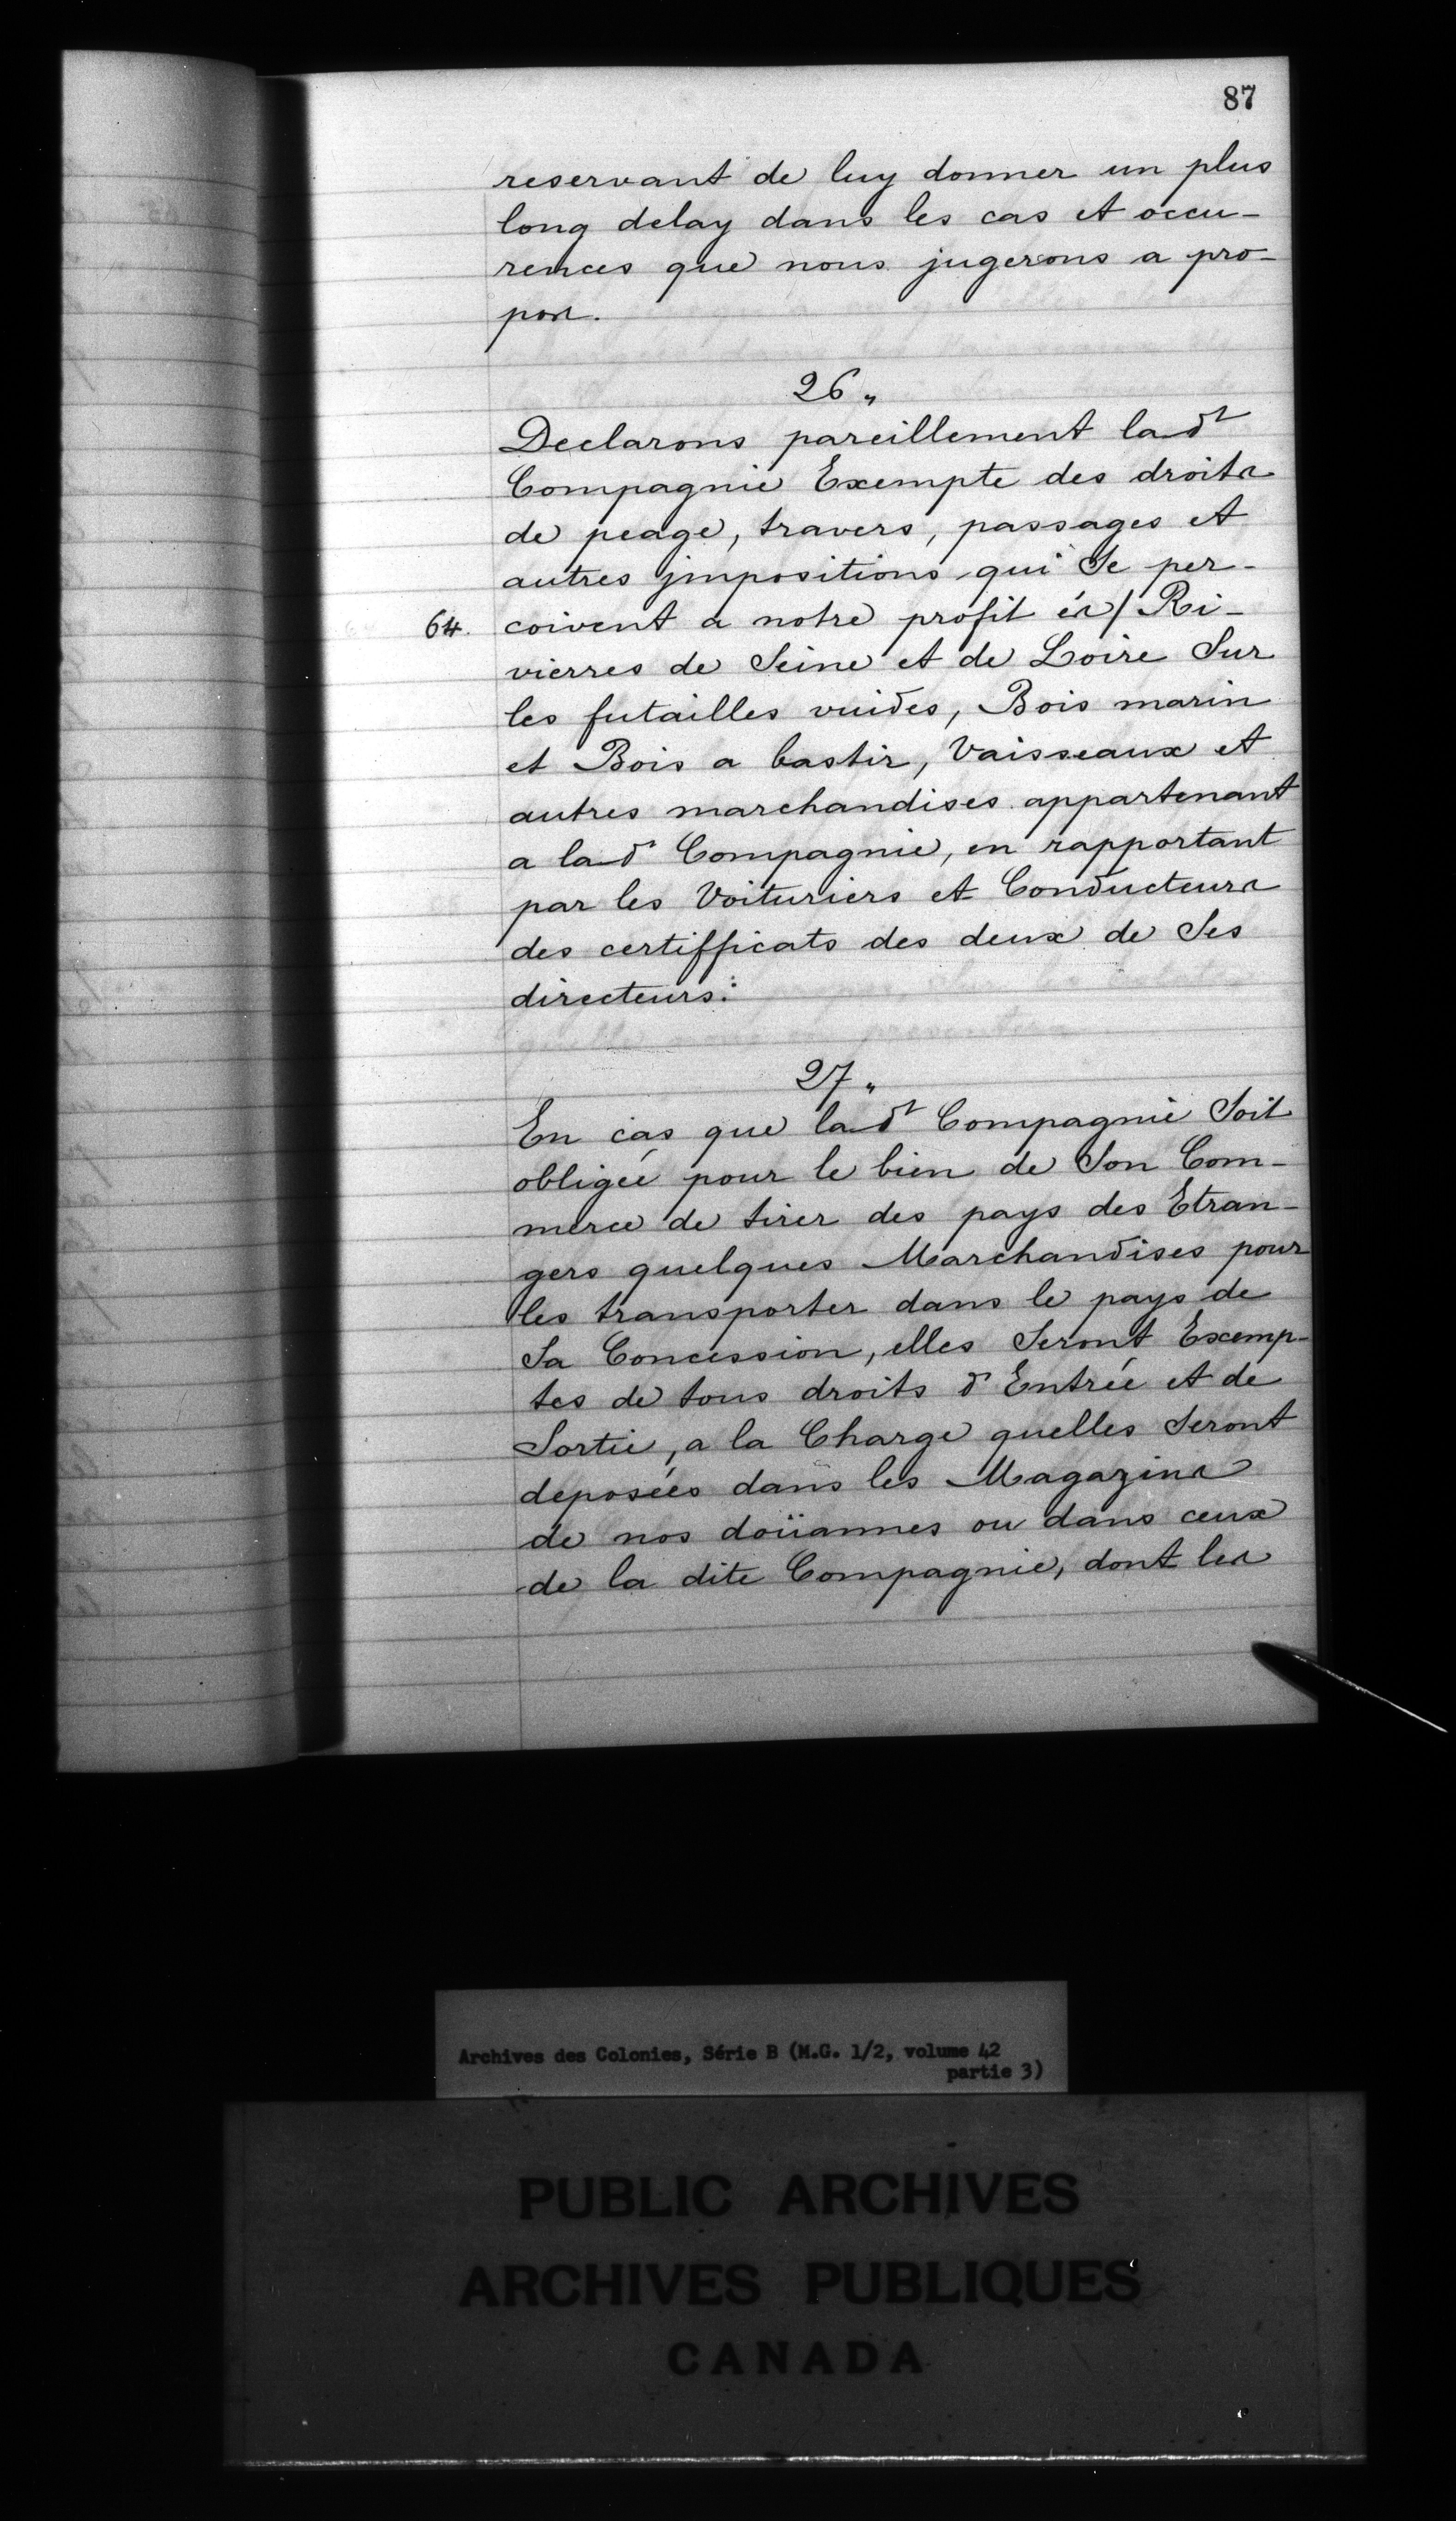 87
reservant de luy donner un plus
long delay dans les cas et occu-
rences que nous jugerons a pro-
pos.
26"
Declarons pareillement lad.t
Compagnie Exempte des droits
de peage, travers, passages et
autres jmpositions qui Se per-
64. coivent a notre profit és / Ri-
vierres de Seine et de Loire Sur
les futailles vuides, Bois marin
et Bois a bastir, Vaisseaux et
autres marchandises appartenant
a lad.t Compagnie, en rapportant
par les Voituriers et Conducteurs
des certifficats des deux de Ses
directeurs:
27"
En cas que lad.t Compagnie Soit
obligée pour le bien de Son Com-
merce de tirer des pays des Etran-
gers quelques Marchandises pour
les transporter dans le pays de
Sa Concession, elles Seront Exemp-
tes de tous droits d'Entrée et de
Sortie, a la Charge quelles Seront
deposées dans les Magazins
de nos doüannes ou dans ceux
de la dite Compagnie, dont les
Archives des Colonies, Série B (M.G. 1/2, volume 42
partie 3)
PUBLIC ARCHIVES
ARCHIVES PUBLIQUES
CANADA